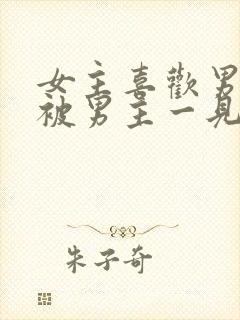 女主喜歡男
被男主一見
朱子奇